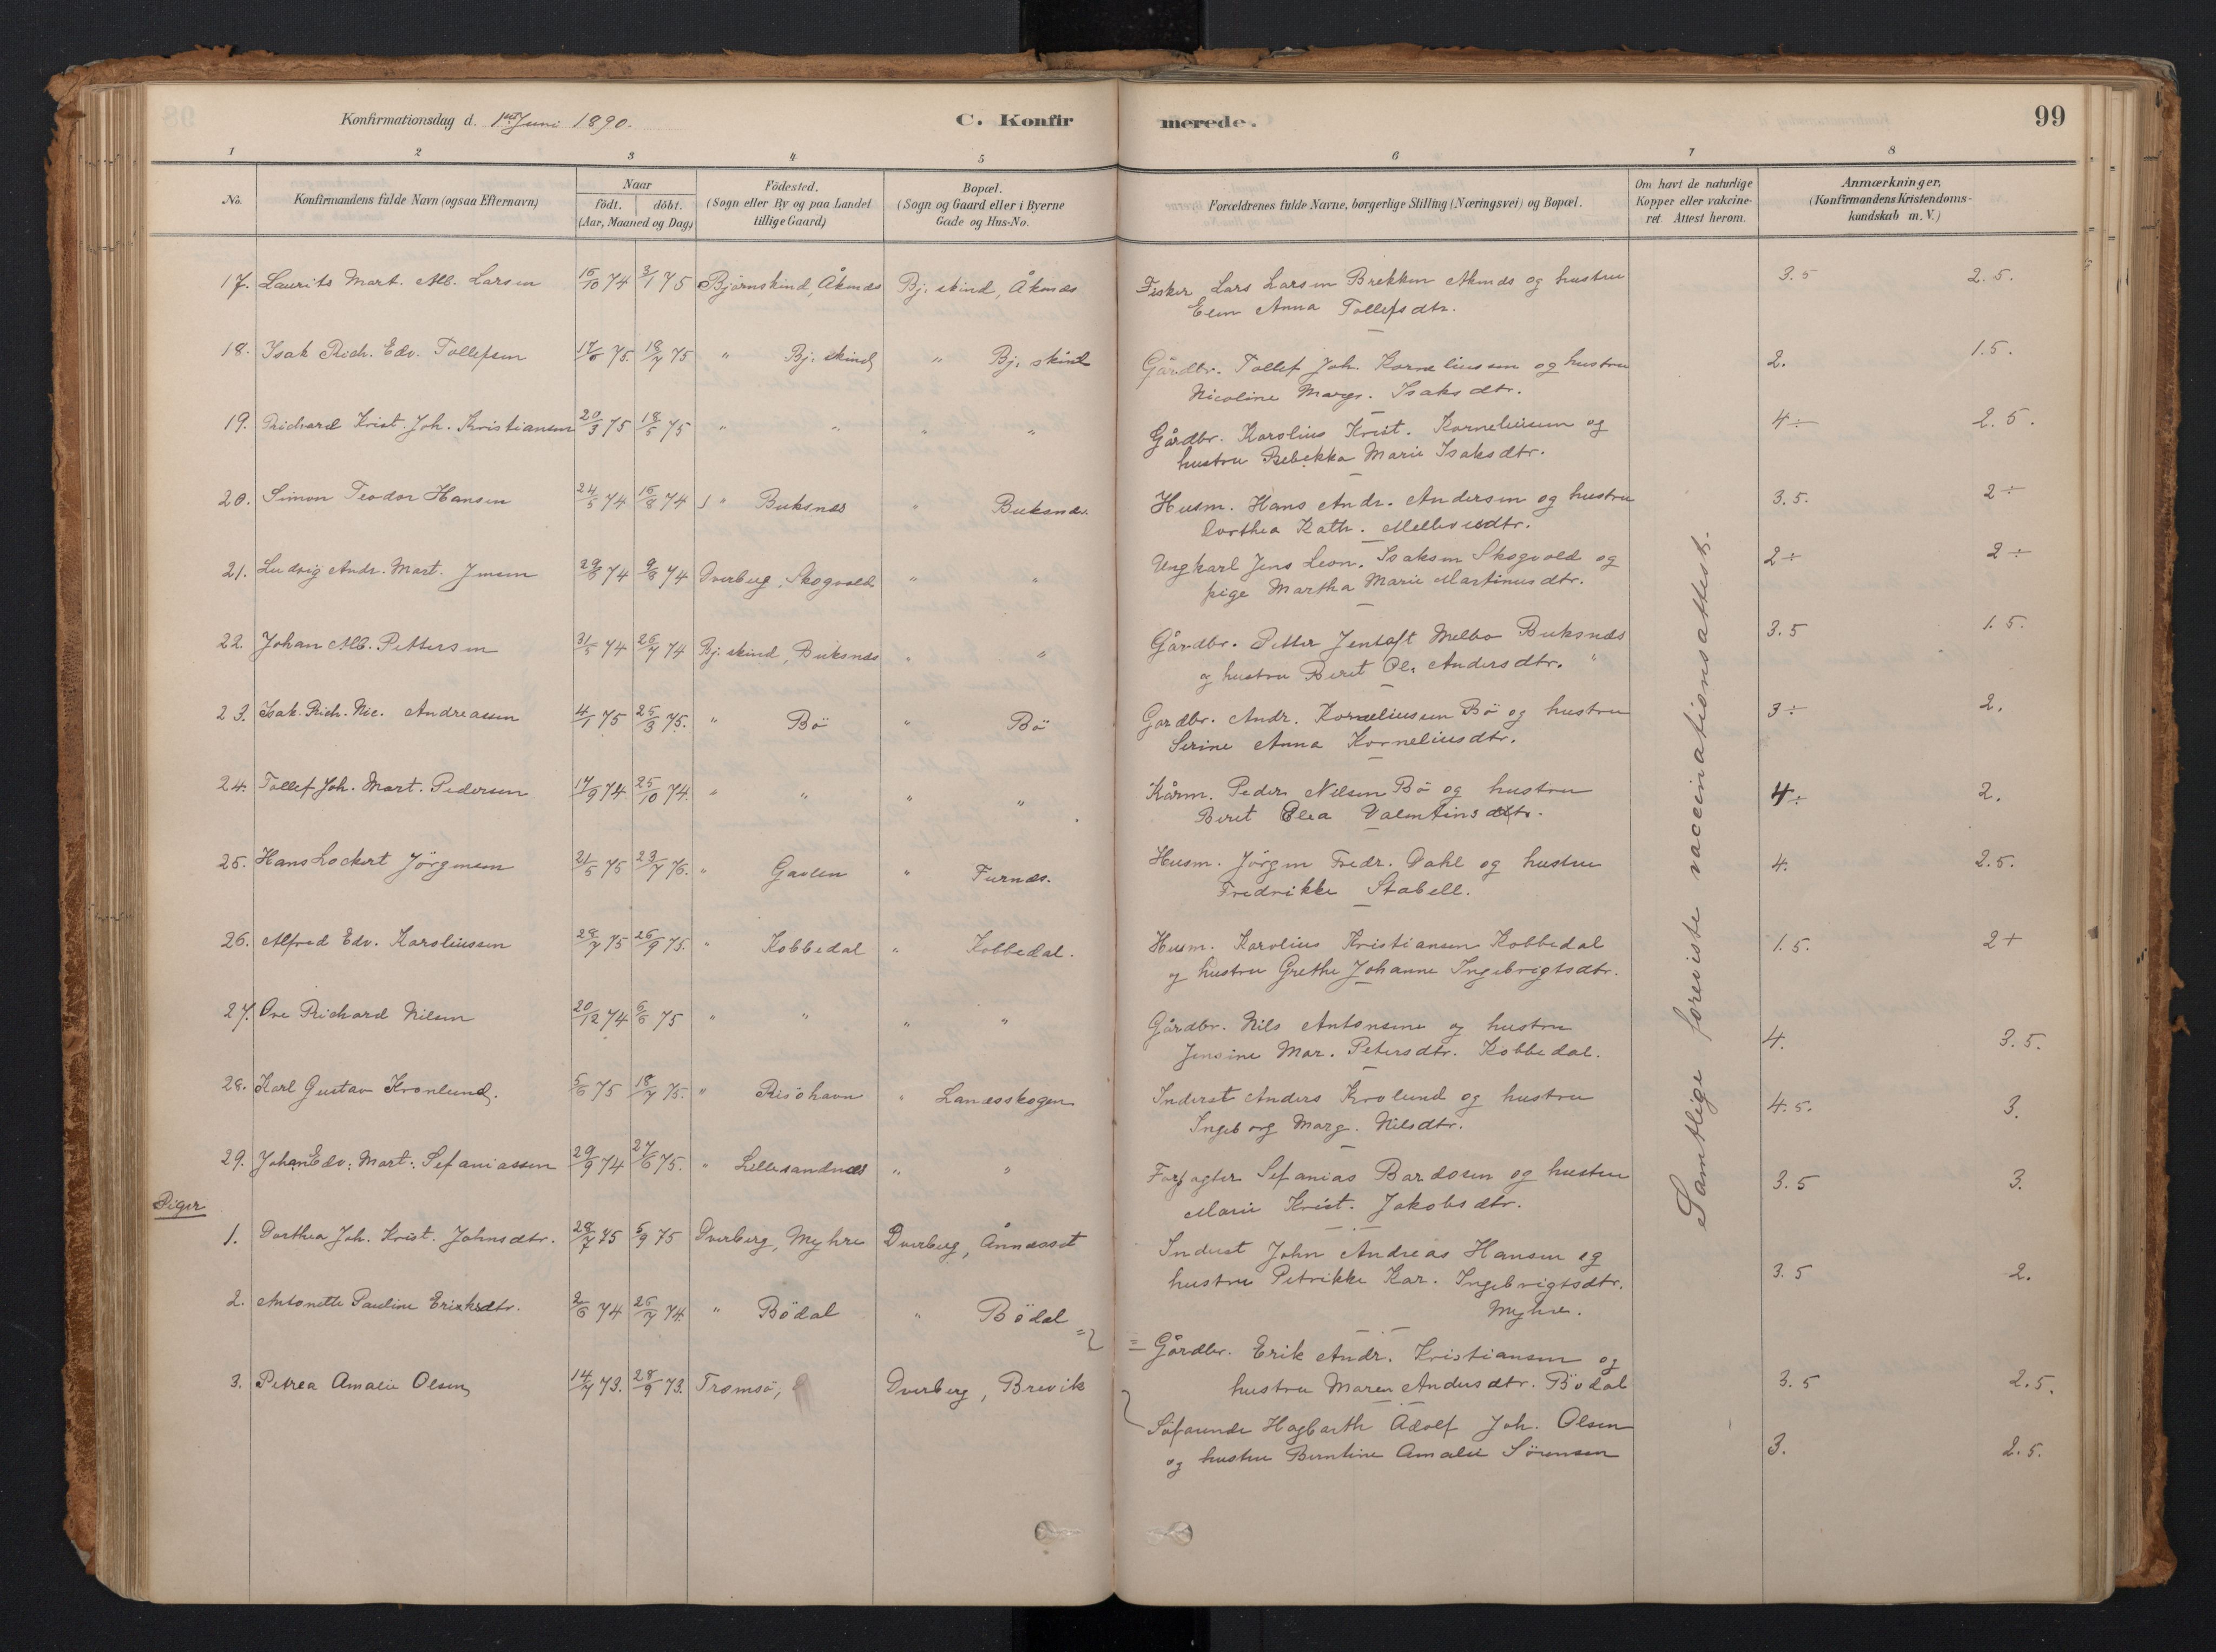 Konfirmationsdag d. 1ste Juni 1890.
C. Konfirmerede.
99
1 2 3 4 5 6 7 8
No. Konfirmandens fulde Navn (ogsaa Efternavn) Naar födt. döbt. (Aar, Maaned og Dag) Födested. (Sogn eller By og paa Landet tillige Gaard) Bopæl. (Sogn og Gaard eller i Byerne Gade og Hus-No. Forældrenes fulde Navne, borgerlige Stilling (Næringsvei) og Bopæl. Om havt de naturlige Kopper eller vakcineret. Attest herom. Anmærkninger, (Konfirmandens Kristendomskundskab m. V.)
17. Laurits Mart. Alb. Larsen 16/10 74 3/1 75 Bjørnskind, Åknæs Bj.skind, Åknæs Fisker Lars Larsen Brekken Aknæs og hustru 3.5 2.5.
Elen Anna Tollefsdtr.
18. Isak Rich. Edv. Tollefsen 17/6 75. 18/7 75 " Bj.skind " Bj.skind Gårdbr. Tollef Joh. Korneliussen og hustru 2. 1.5.
Nicoline Margr. Isaksdtr.
19. Richard Krist. Joh. Kristiansen 20/3 75 18/5 75 " " " " Gårdbr. Karolius Krist. Korneliussen og 4÷ 2.5.
hustru Rebekka Marie Isaksdtr.
20. Simon Teodor Hansen 24/5 74 16/8 74 " Buksnæs " Buksnæs. Husm. Hans Andr. Andersen og hustru 3.5. 2÷
Dorthea Kath. Mellevesdtr.
21. Ludvig Andr. Mart. Jensen 29/6 74 9/8 74 Dverberg, Skogvold " " Ungkarl Jens Leon. Isaksen Skogvold og 2÷ 2÷
pige Martha Marie Martinusdtr.
22. Johan Alb. Pettersen 31/5 74 26/7 74 Bj.skind, Buksnæs " " Gårdbr. Petter Jentoft Melbo Buksnæs 3.5 1.5.
og hustru Beret Ol. Andersdtr. "
23. Isak Rich. Nic. Andreassen 4/1 75 25/3 75. " Bö " Bö Gardbr. Andr. Korneliussen Bö og hustru 3÷ 2.
Serine Anna Korneliusdtr.
24. Tollef Joh. Mart. Pedersen 17/9 74 25/10 74. " " " " Kårm. Peder Nilsen Bö og hustru 4÷ 2.
Beret Elea Valentinsdtr.
25. Hans Lockert Jörgensen 21/5 75 23/7 76. " Gavlen " Furnæs. Husm. Jörgen Fredr. Dahl og hustru 4. 2.5.
Fredrikke Stabell.
26. Alfred Edv. Karoliussen 28/7 75 26/9 75. " Kobbedal " Kobbedal. Husm. Karolius Kristiansen Kobbedal 1.5. 2+
og hustru Grethe Johanne Ingebrigtsdtr.
27. Ove Richard Nilsen 20/12 74 6/6 75 " " " " Gårdbr. Nils Antonsen og hustru 4. 3.5.
Jensine Mar. Petersdtr. Kobbedal.
28. Karl Gustav Kronlund. 5/6 75 18/7 75. " Risöhavn " Landsskogen Inderst Anders Krolund og hustru 4.5. 3.
Ingeborg Marg. Nilsdtr.
29. Johan Edv. Mart. Sefaniassen 29/9 74 27/6 75. " Lillesandnæs " " Forpagter Sefanias Bardosen og hustru 3.5 3.
Marie Krist. Jakobsdtr.
Piger
1. Dorthea Joh. Krist. Johnsdtr. 28/7 75 5/9 75 Dverberg, Myhre Dverberg, Ånnæsset Inderst John Andreas Hansen og 3.5 2.
hustru Petrikke Kar. Ingebrigtsdtr.
Myhre.
2. Antonette Pauline Eriksdtr. 2/6 74 26/7 74. " Bödal " Bödal = Gårdbr. Erik Andr. Kristiansen og 3.5 2.5.
hustru Maren Andersdtr. Bödal
3. Petrea Amalie Olsen 14/7 73. 28/9 73. Tromsö, Dverberg, Brevik Söfarende Hagbarth Adolf Joh. Olsen 3. 2.5.
og hustru Berntine Amalie Sörensen
Samtlige foreviste vaccinationsattest.